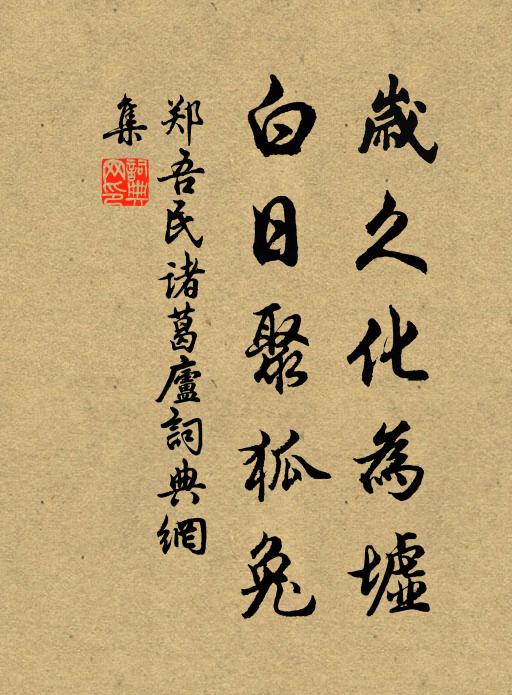 歲久化為墟
白日聚狐兔
郑吾民诸葛廬詞典網
集
詞典网印